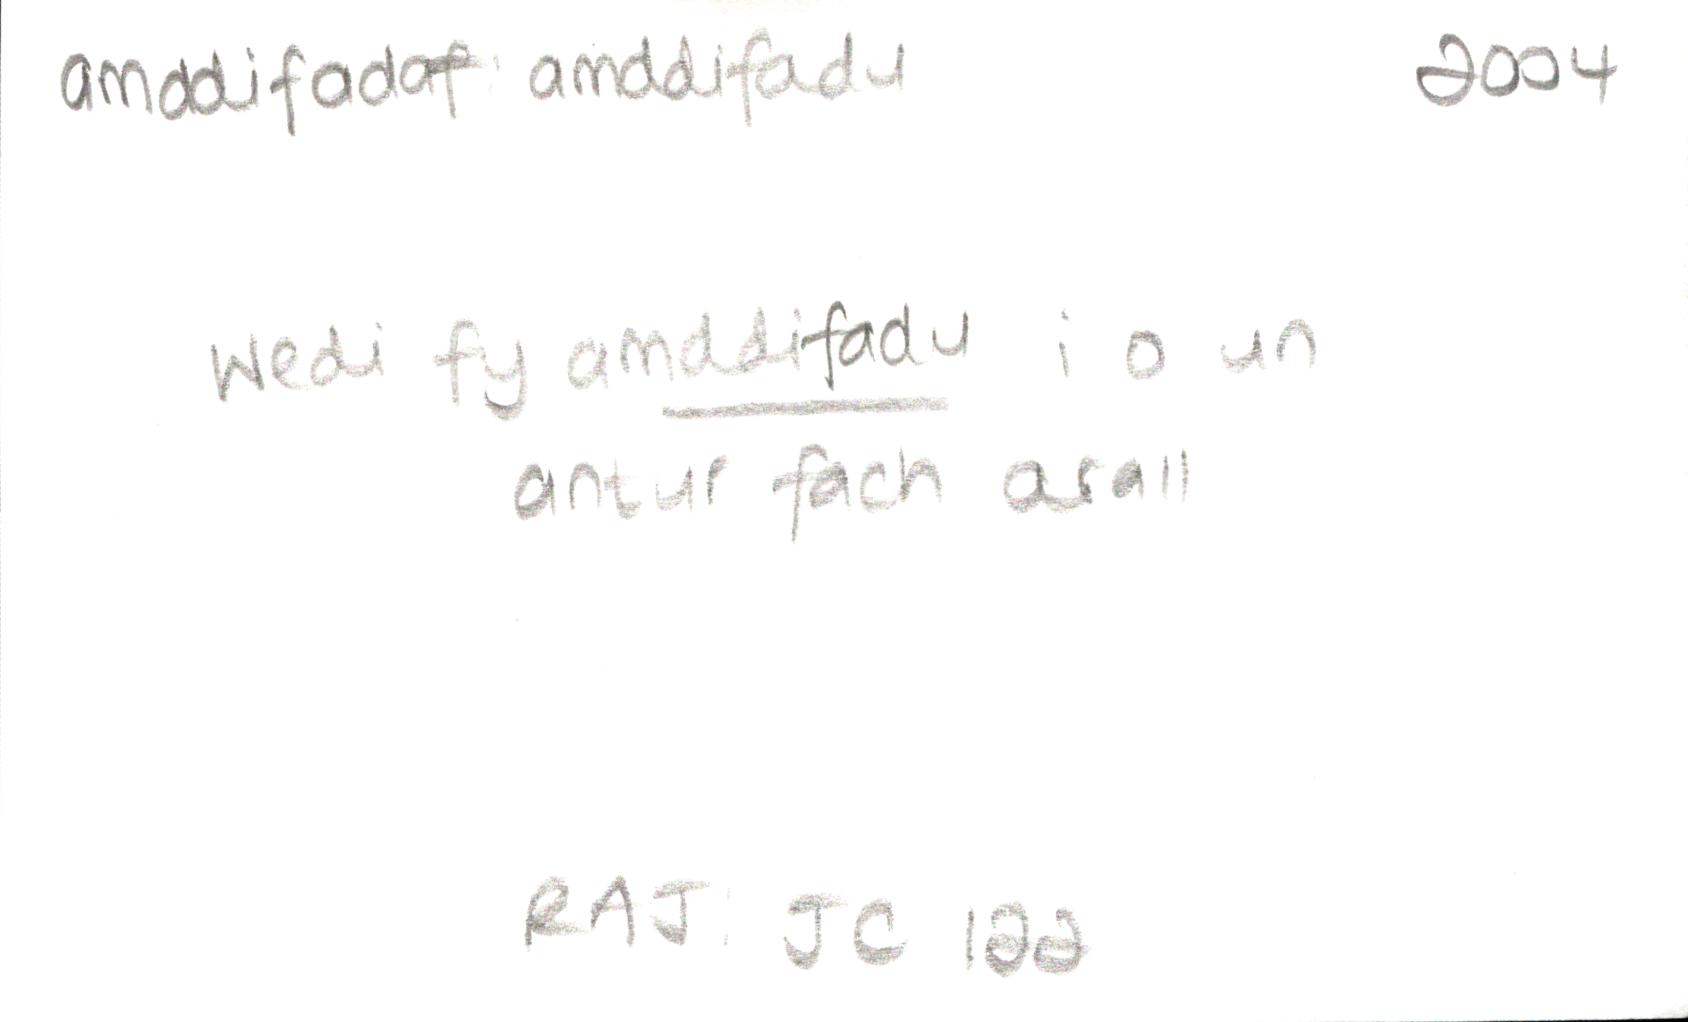 amddifadaf: amddifadu 2004
Wedi fy amddifadu i o un
antur fach arall
RAJ: JC 122